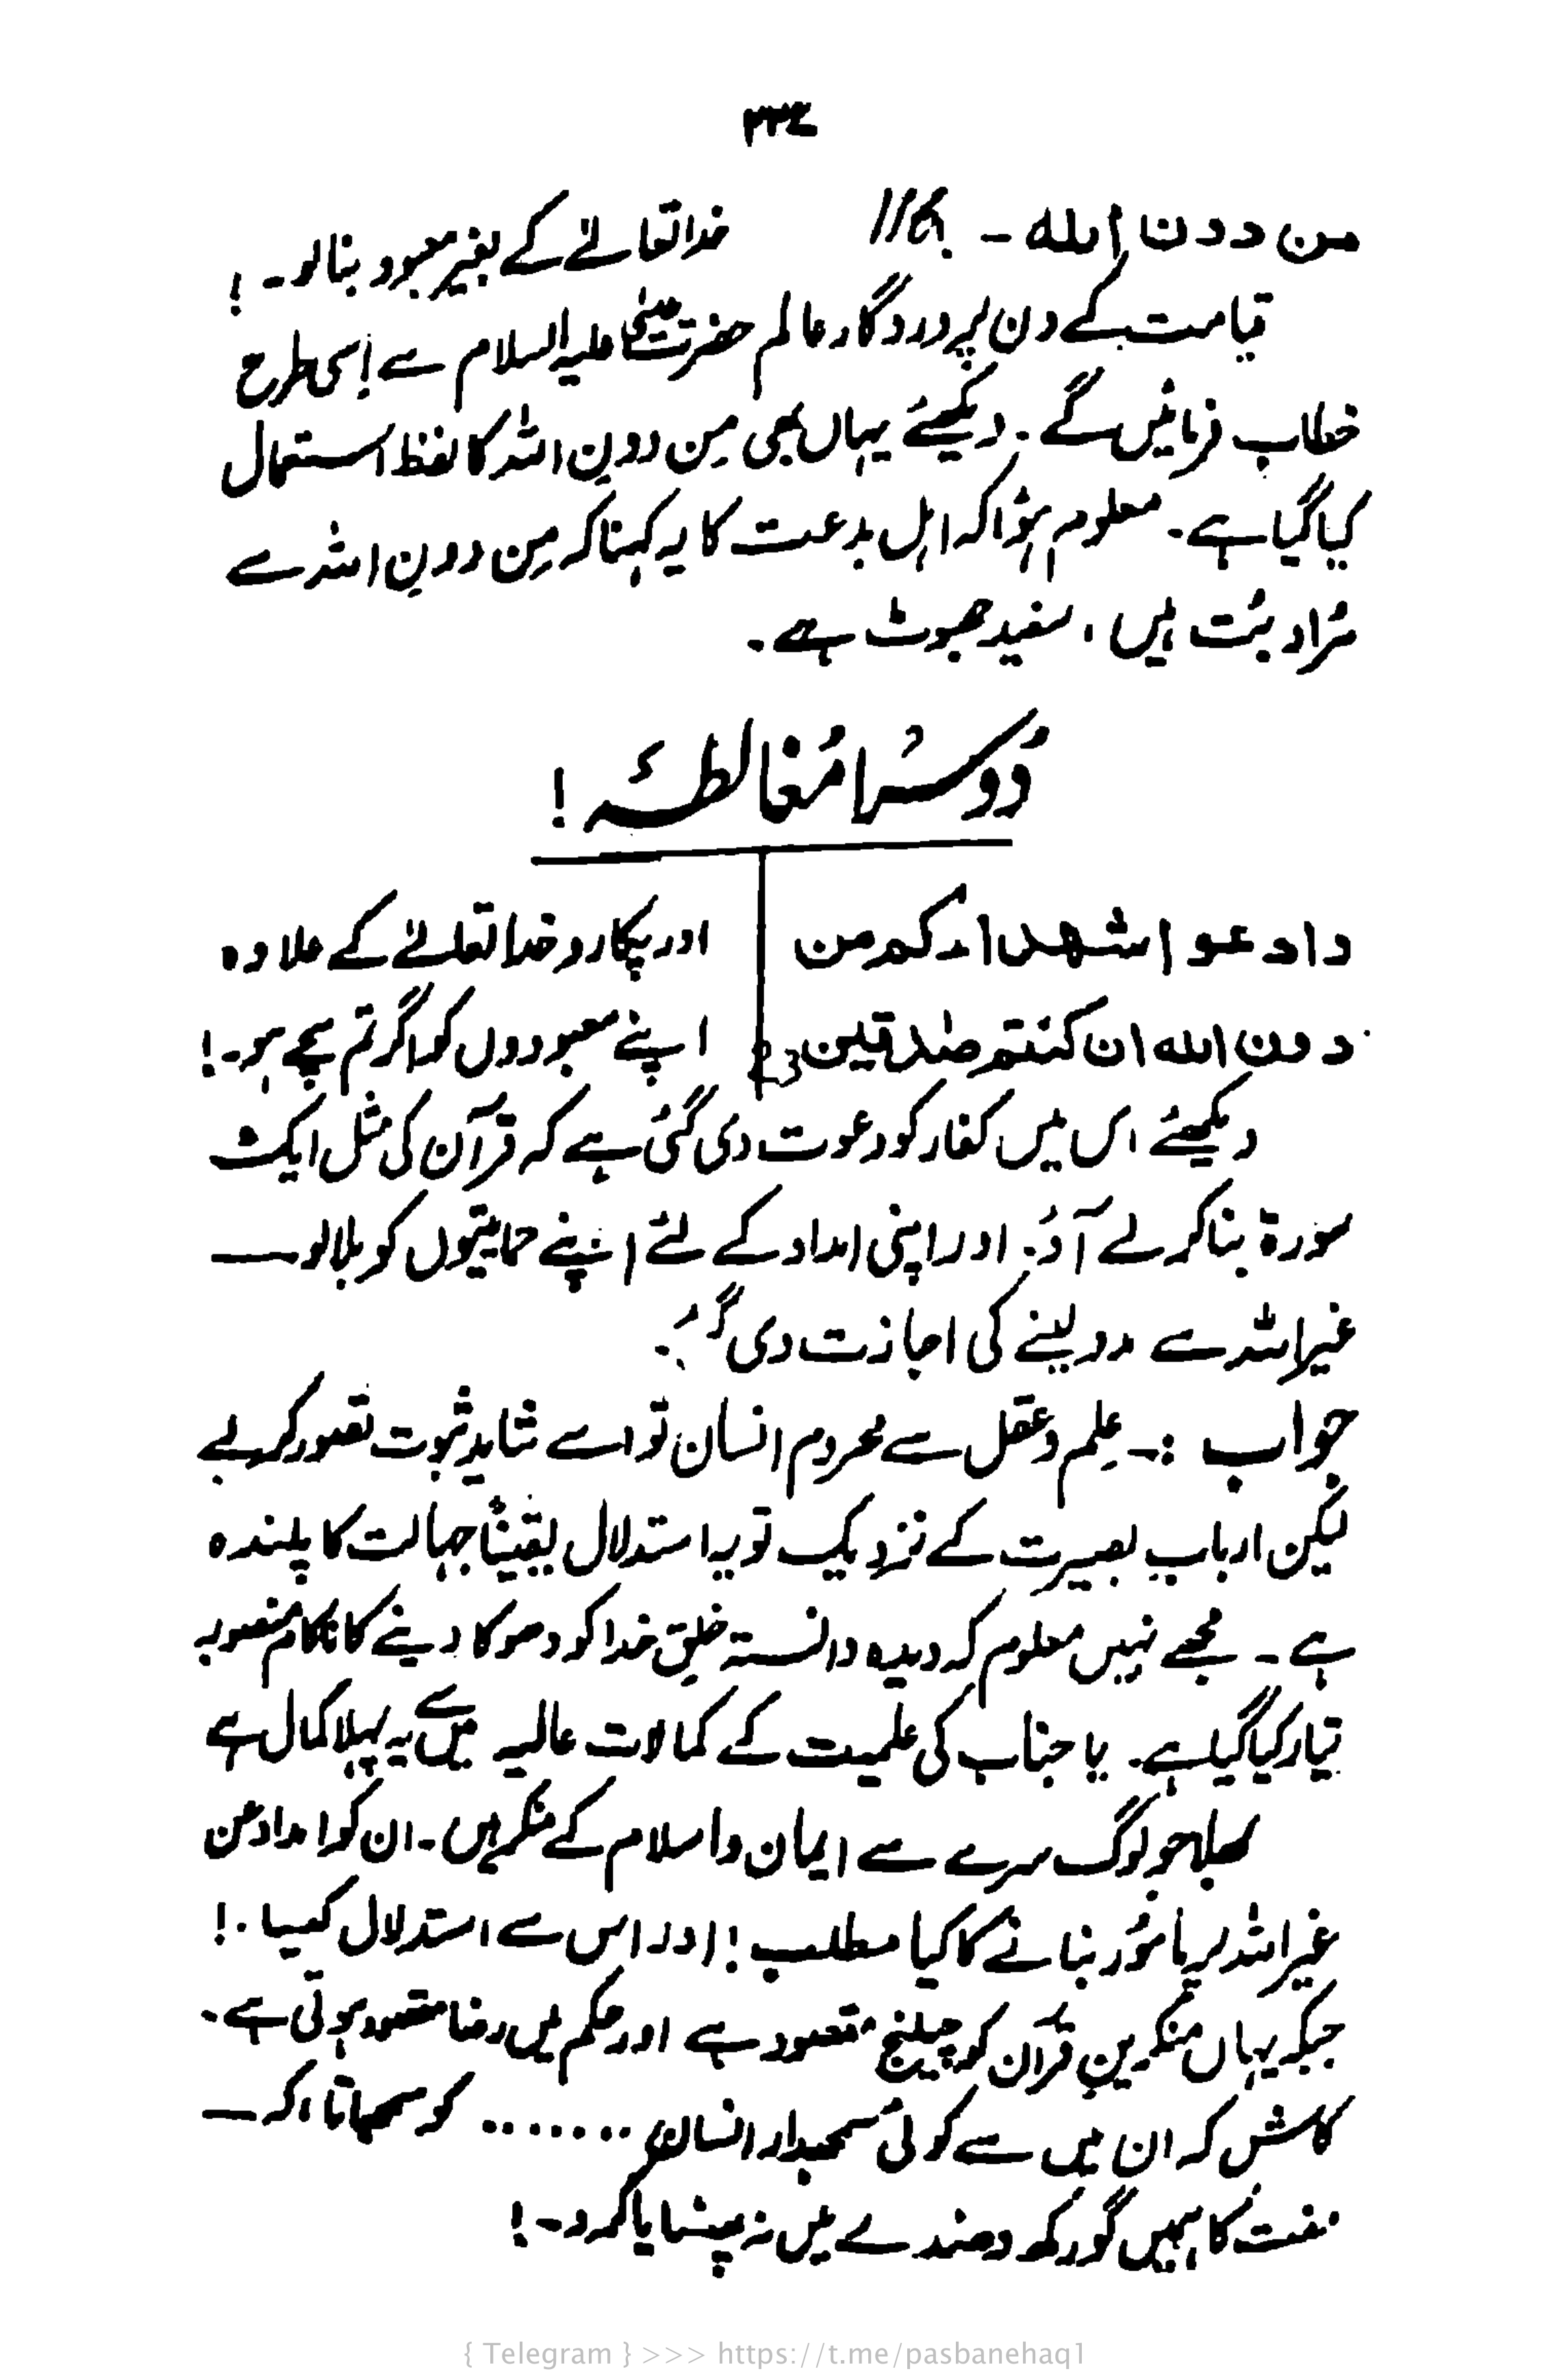 من دون الله - 116 خدا تعالےٰ کے بغیر معبود بنا لو۔ !
قیامت کے دن پروردگار عالم حضرت عیسٰی علیہ السلام سے اِسی طرح
خطاب فرمائیں گے . دیکھئے یہاں بھی مِن دونِ اللہ کا لفظ استعمال
کیا گیا ہے۔ معلوم ہؤا کہ اہل بدعت کا یہ کہنا کہ مِن دونِ اللہ سے
مُراد بُت ہیں ، سفید جھوٹ ہے۔
دُوسرا مُغالطہ !
وادعوا شهداءکم من اور پکارو خدا تعالےٰ کے علاوہ
دون الله ان کنتم صٰدقین 23 اپنے معبودوں کو اگر تم سچے ہو۔ !
دیکھئے اس میں کفار کو دعوت دی گئی ہے کہ قرآن کی مثل ایک
سورۃ بنا کر لے آؤ. اور اپنی امداد کے لئے اپنے حمایتیوں کو بلا لو ــــ
غیر اللہ سے مدد لینے کی اجازت دی گئی.
جواب :۔ عِلم و عقل سے محروم انسان تو اسے شاید ثبوت تصور کر لے
لیکن اربابِ بصیرت کے نزدیک تو یہ استدلال یقیناً جہالت کا پلندہ
ہے ۔ مجھے نہیں معلوم کہ دیدہ دانستہ خلقِ خدا کو دھوکا دینے کا ناکام منصوبہ
تیار کیا گیا ہے۔ یا جناب کی علمیت کے کمالات عالیہ میں سے یہ پہلا کمال ہے
بھلا جو لوگ سرے سے ایمان و اسلام کے منکر ہیں۔ ان کو امداد من
غیر اللہ پر مامُور بنانے کا کیا مطلب ! اور اس سے استدلال کیسا . !
جبکہ یہاں منکرینِ قرآن کو چیلنج مقصود ہے اور حکم میں رضا مقصود ہوتی ہے۔
کاش کہ ان میں سے کوئی سمجھدار انسان ........ کو سمجھاتا، کہ ــــ
مفت کا ہمیں گورکھ دھندے میں نہ پھنسایا کرو۔ !
{ Telegram } >>> https://t.me/pasbanehaq1